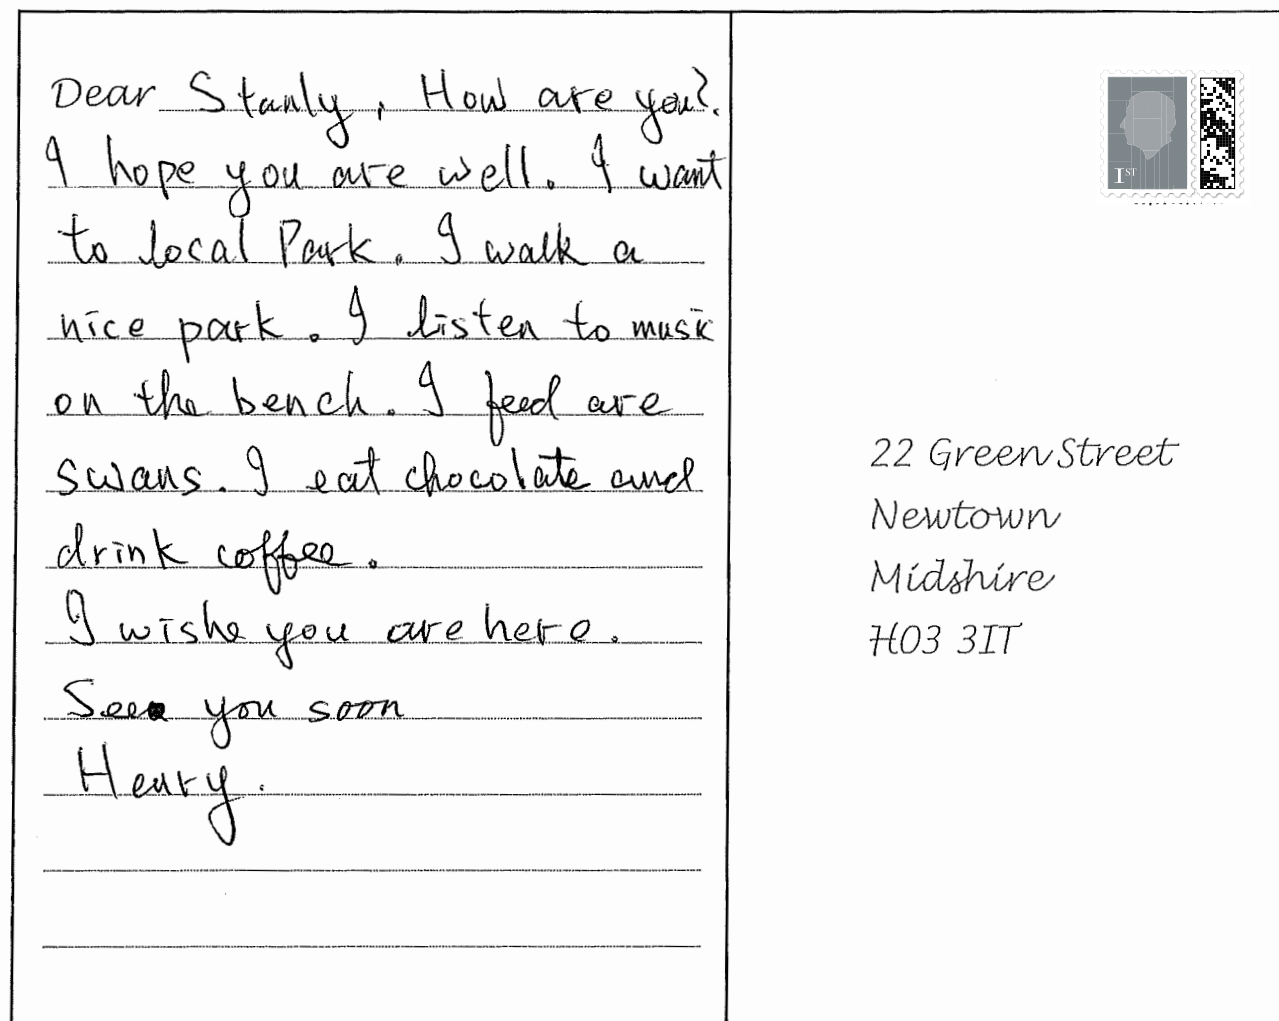 Dear Stanly, How are you?.
I hope you are well. I want
to local Park. I walk a
nice park. I listen to music
on the bench. I feed are
swans. I eat chocolate and
drink coffee.
I wishe you are here.
See you soon
Henry.
1ST
22 Green Street
Newtown
Midshire
HO3 3IT